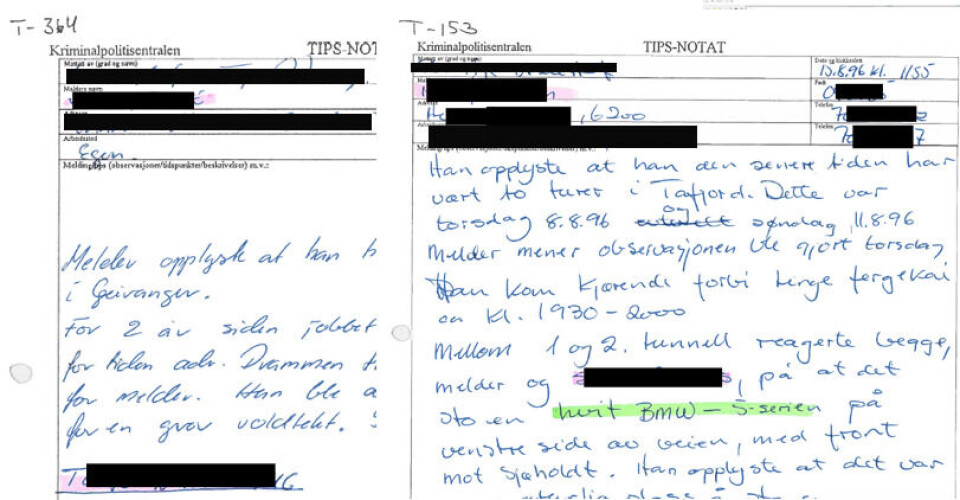 T-364
Kriminalpolitisentralen TIPS-NOT
Mottatt av (grad og navn)
Melders navn
Adresse
Arbeidssted
Egen.
Meldingstype (observasjoner/tidspunkter/beskrivelser) m.v.:
Melder opplyste at han
i Geiranger.
For 2 år siden jobbet
for tiden adr. Drammen
for melder. Han ble
for en grov voldtekt.
T-153
Kriminalpolitisentralen TIPS-NOTAT
Mottatt av (grad og navn)
Dato og klokkeslett
13.8.96 kl. 1155
Født
Adresse
, 6200
Telefon
Telefon
Han opplyste at han den senere tiden har
vært to turer i Tafjord. Dette var
torsdag 8.8.96 og søndag 11.8.96
Melder mener observasjonen ble gjort torsdag,
Han kom kjørende forbi Linge fergekai
ca kl. 1930-2000
Mellom 1 og 2. tunnell reagerte begge,
melder og , på at det
sto en hvit BMW - 5-serien på
venstre side av veien, med front
mot Sjøholdt. Han opplyste at det var